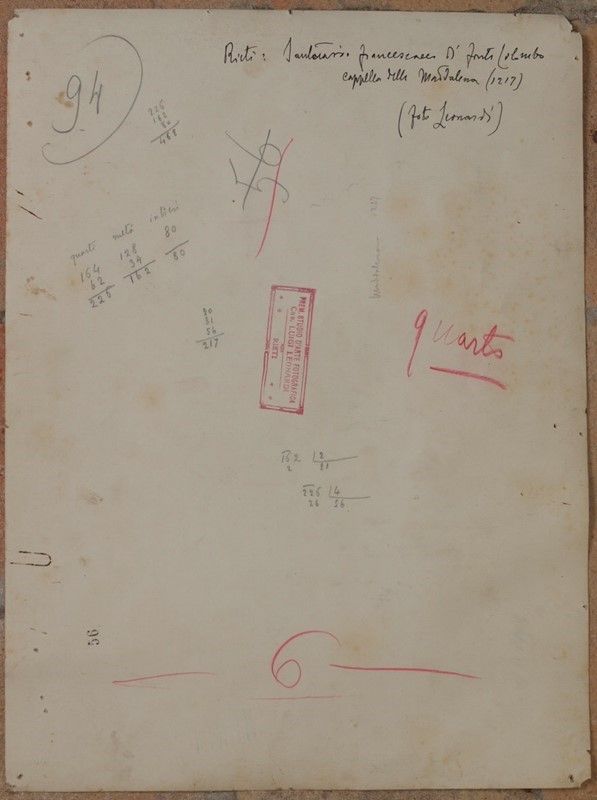 Rieti: Santuario francescano di Fonte Colombo
cappella della Maddalena (1217)
(foto Leonardi)
94
226
162
80
468
56
quarti metà intieri
164 128 80
62 34
225 162 80
Maddalena 1217
80
81
56
217
PREM. STUDIO D'ARTE FOTOGRAFICA
CAV. LUIGI LEONARDI
RIETI
quarto
162 2
2 81
225 4
26 56
56
6